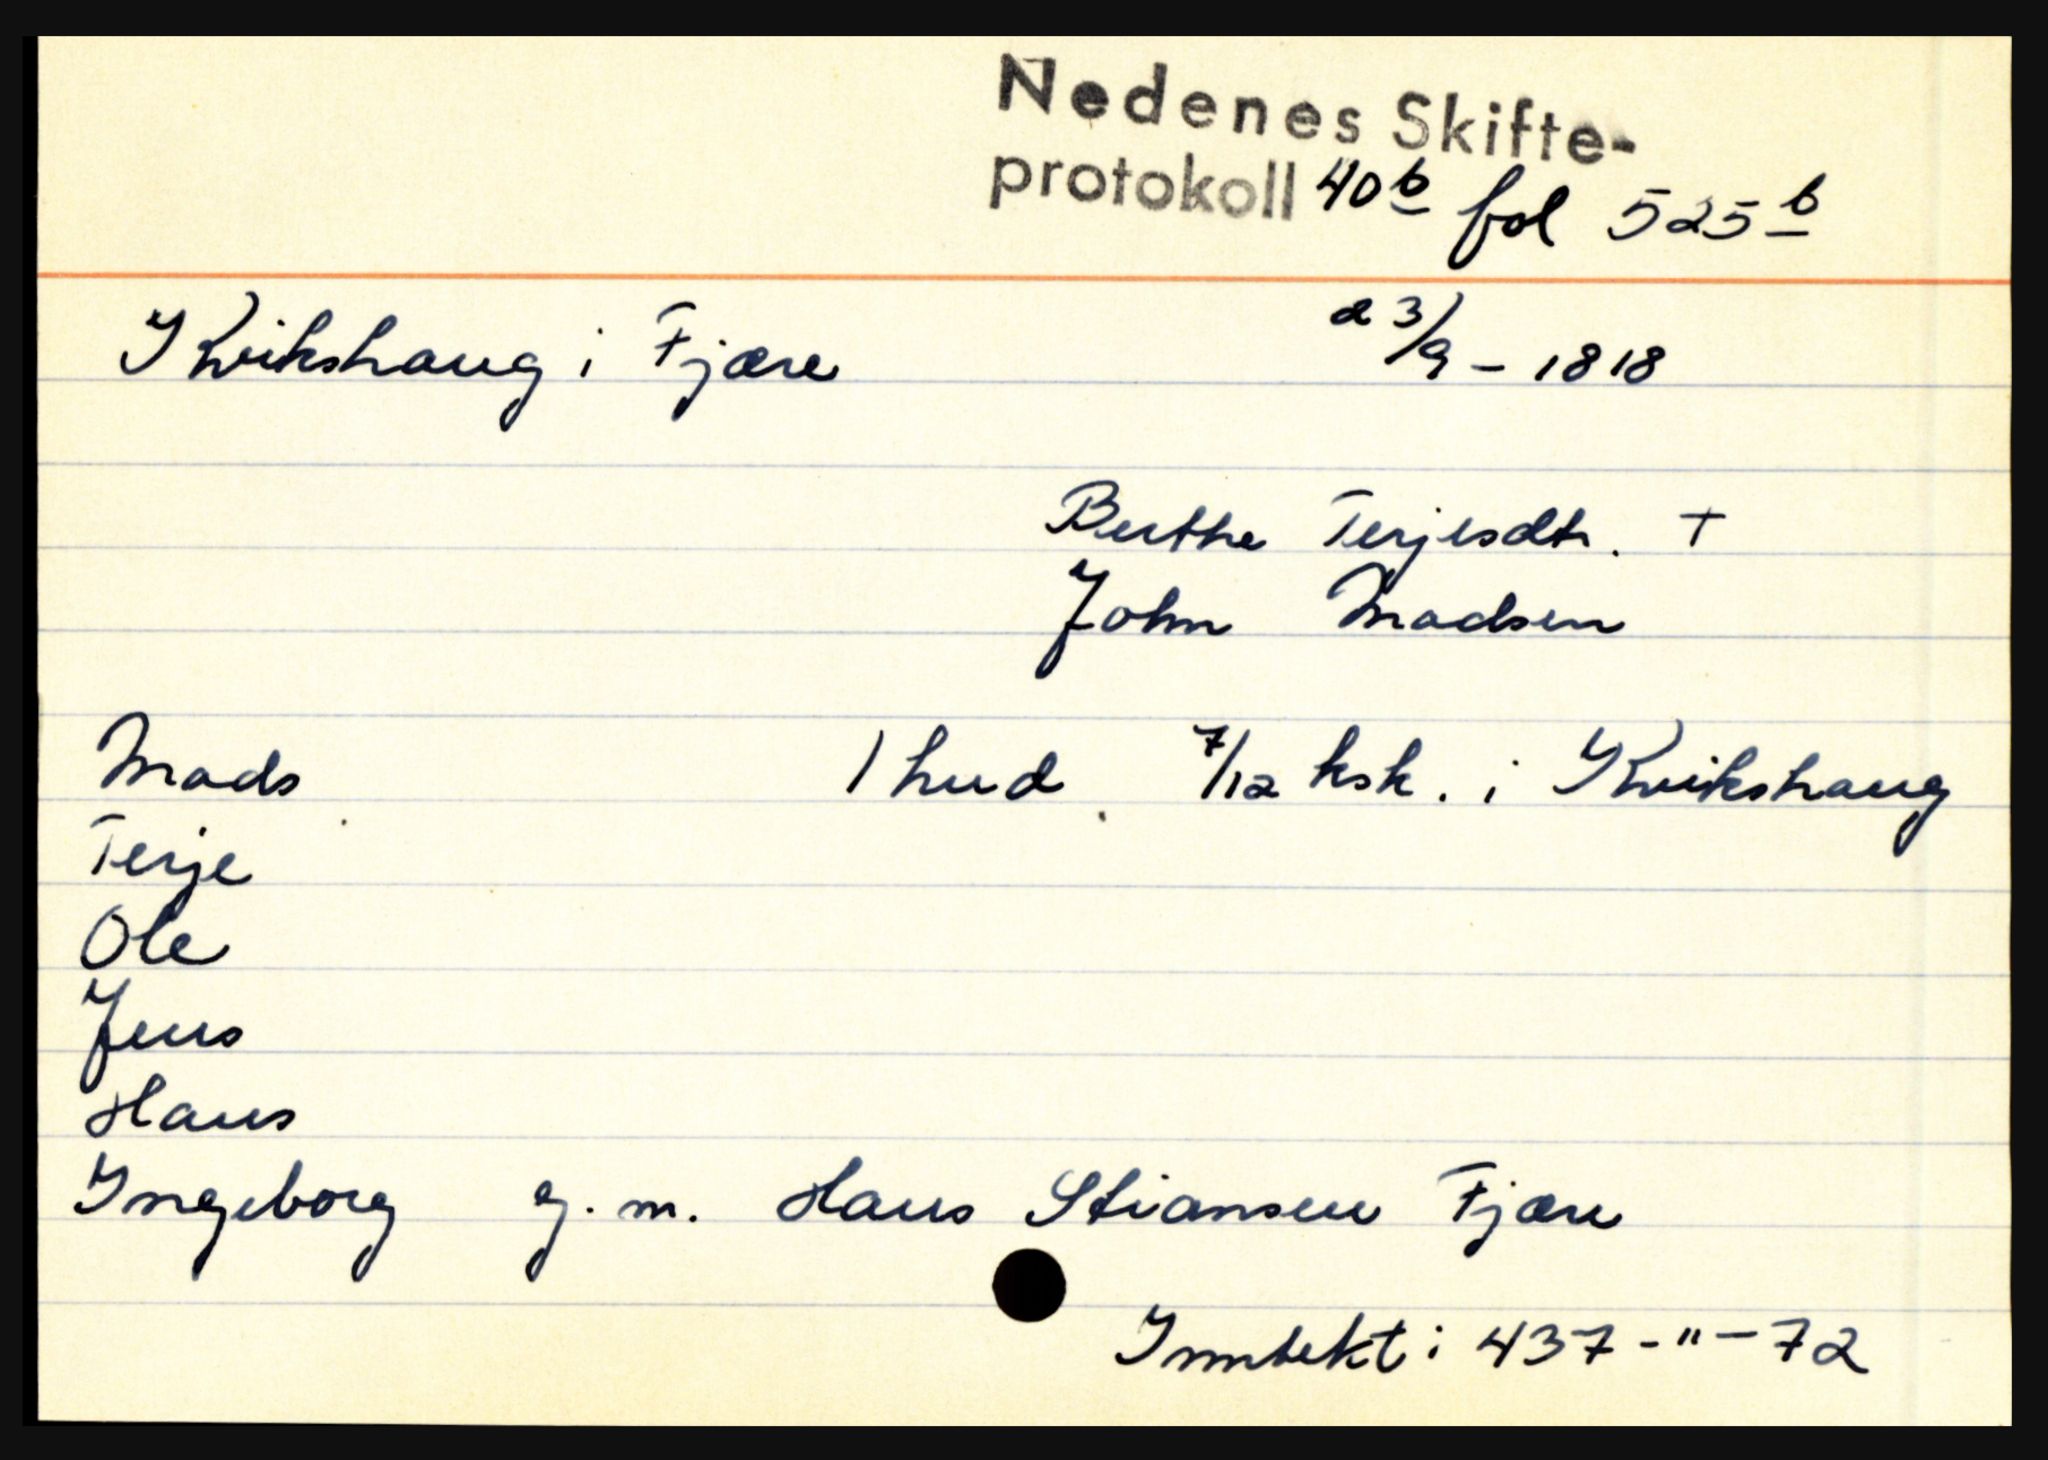 Nedenes Skifte-
protokoll 40b fol 525b
Kvikshaug i Fjære 23/9 - 1818
Berthe Terjesdtr. +
John Madsen
Mads 1 hud 7/12 ksk. i Kvikshaug
Terje
Ole
Jens
Hans
Ingeborg g. m. Hans Stiansen Fjære
Inntekt: 437 - " - 72